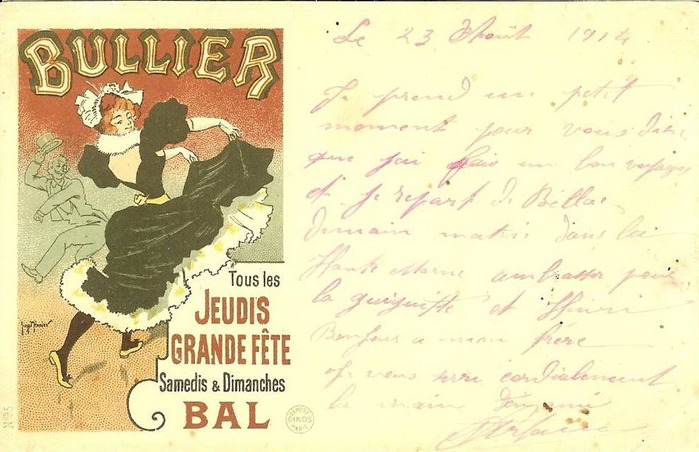 BULLIER
Tous les
JEUDIS
GRANDE FÊTE
Samedis & Dimanches
BAL
Le 23 Août 1914
Je prend un petit
moment pour vous dire
que jai fais un bon voyage
et je repart de Bellac
demain matin dans la
Haute Marne pour
la et
Bonjour a mon frère
Je vous serre cordialement
la main